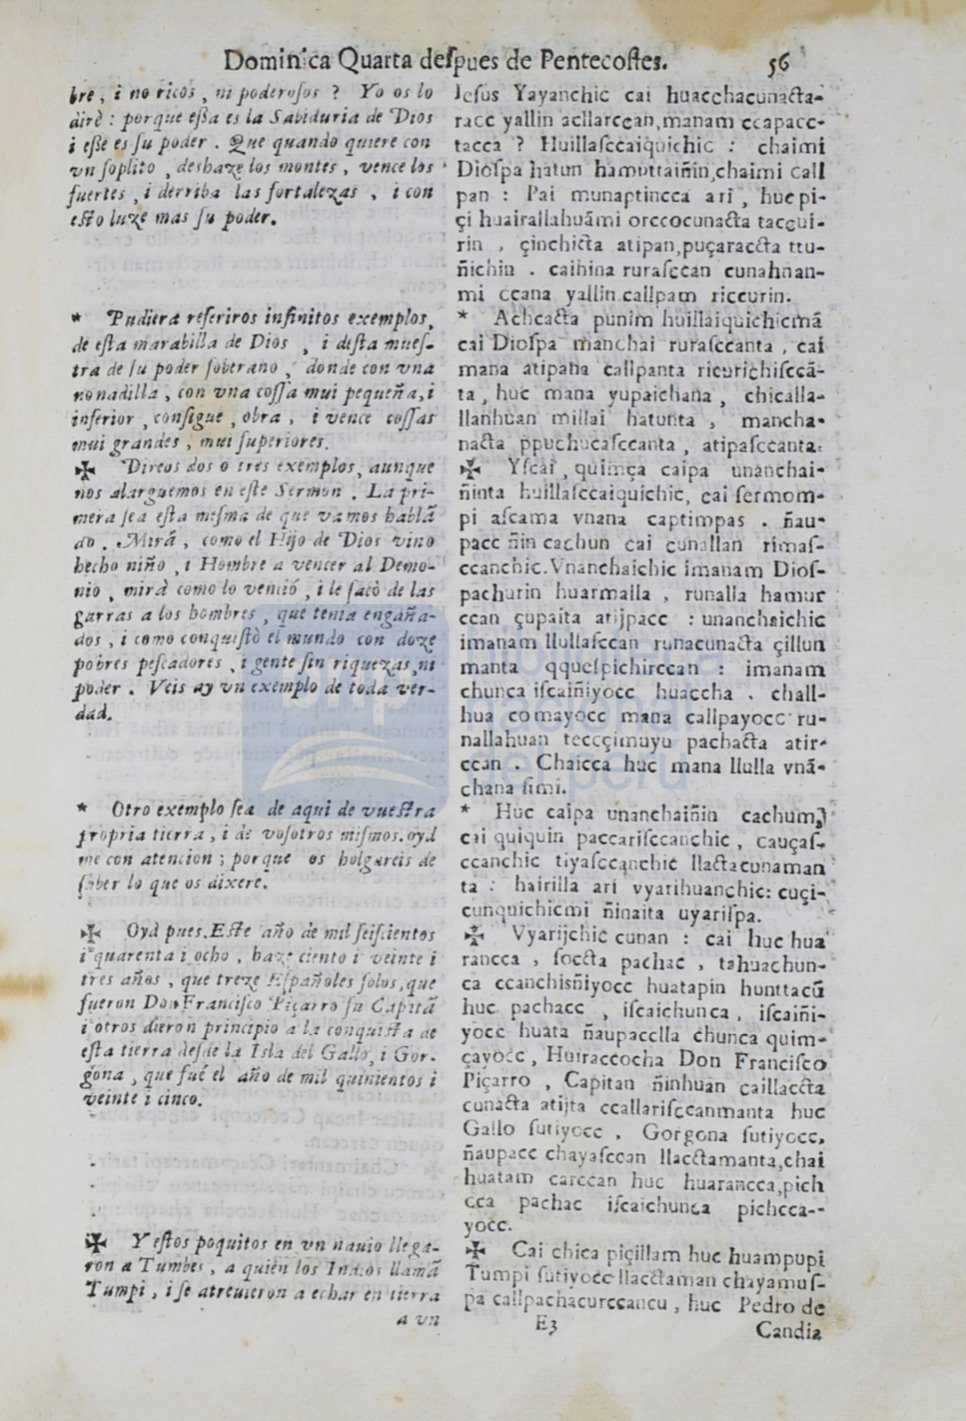 Dominica Quarta deſpues de Pentecoſtes. 56
bre, i no ricos, ni poderoſos ? Yo os lo
dirè : porque eſta es la Sabiduria de Dios
i eſte es ſu poder. Que quando quiere con
vn ſoplito, deshaze los montes, vence los
fuertes, i derriba las fortalezas, i con
eſto luze mas ſu poder.
* Pudiera referiros infinitos exemplos,
de eſta marabilla de Dios, i deſta mueſ-
tra de ſu poder ſoberano, donde con vna
nonadilla, con vna coſſa mui pequeña, i
inferior, conſigue, obra, i vence coſſas
mui grandes, mui ſuperiores.
✠ Direos dos o tres exemplos, aunque
nos alarguemos en eſte Sermon. La pri-
mera ſea eſta meſma de que vamos hablã
do. Mirà, como el Hijo de Dios vino
hecho niño, i Hombre a vencer al Demo-
nio, mirà como lo venció, i le ſacò de las
garras a los hombres, que tenia engaña-
dos, i como conquiſtò el mundo con doze
pobres peſcadores, i gente ſin riquezas, ni
poder. Veis ay vn exemplo de toda ver-
dad.
* Otro exemplo ſea de aqui de vueſtra
propria tierra, i de voſotros miſmos. oyd
me con atencion; porque os holgareis de
ſaber lo que os dixere.
✠ Oyd pues. Eſte año de mil ſeiſcientos
i quarenta i ocho, haze ciento i veinte i
tres años, que treze Eſpañoles ſolos, que
fueron Don Franciſco Piçarro ſu Capitã
i otros dieron principio a la conquiſta de
eſta tierra deſde la Isla del Gallo, i Gor-
gona, que fué el año de mil quinientos i
veinte i cinco.
✠ Y eſtos poquitos en vn nauio llega-
ron a Tumbes, a quien los Indios llamã
Tumpi, i ſe atreuieron a echar en tierra
a vn
Jeſus Yayanchic cai huacchacunacta-
racc yallin acllarccan, manam ccapacc-
tacca ? Huillaſccaiquichic : chaimi
Dioſpa hatun hamuttaiñin, chaimi call
pan : Pai munaptincca ari, huc pi-
çi huairallahuãmi orccocunacta taccui-
rin, çinchicta atipan, puçaraccta ttu-
ñichin. caihina ruraſccan cunahuan-
mi ccana yallin callpam riccurin.
* Achcacta punim huillaiquichicmã
cai Dioſpa manchai ruraſccanta, cai
mana atipana callpanta ricurichiſccã-
ta, huc mana yupaichana, chicalla-
llanhuan millai hatunta, mancha-
nacta ppuchucaſccanta, atipaſccanta.
✠ Yſcai, quimça caipa unanchai-
ñinta huillaſccaiquichic, cai ſermom-
pi aſcama vnana captimpas. ñau-
pacc ñin cachun cai cunallan rimaſ-
ccanchic. Vnanchaichic imanam Dioſ-
pachurin huarmalla, runalla hamur
ccan çupaita atijpacc : unanchaichic
imanam llullaſccan runacunacta çillun
manta qqueſpichirccan : imanam
chunca iſcaiñiyocc huaccha. chall-
hua comayocc mana callpayocc ru-
nallahuan teccçimuyu pachacta atir-
ccan. Chaicca huc mana llulla vnã-
chana ſimi.
* Huc caipa unanchaiñin cachum,
cai quiquin paccariſccanchic, cauçaſ-
ccanchic tiyaſccanchic llactacunaman
ta : hairilla ari vyarihuanchic: cuçi-
cunquichicmi ñinaita uyariſpa.
✠ Vyarijchic cunan : cai huc hua
rancca, ſoccta pachac, tahuachun-
ca ccanchisñiyocc huatapin hunttacũ
huc pachacc, iſcaichunca, iſcaiñi-
yocc huata ñaupacclla chunca quim-
çayocc, Huiraccocha Don Franciſco
Piçarro, Capitan ñinhuan caillaccta
cunacta atijta ccallariſccanmanta huc
Gallo ſutiyocc, Gorgona ſutiyocc,
ñaupacc chayaſccan llacctamanta, chai
huatam carccan huc huarancca, pich
cca pachac iſcaichunca pichcca--
yocc.
✠ Cai chica piçillam huc huampupi
Tumpi ſutiyocc llacctaman chayamuſ-
pa callpachacurccancu, huc Pedro de
E3 Candia
bnp biblioteca
nacional
del perú